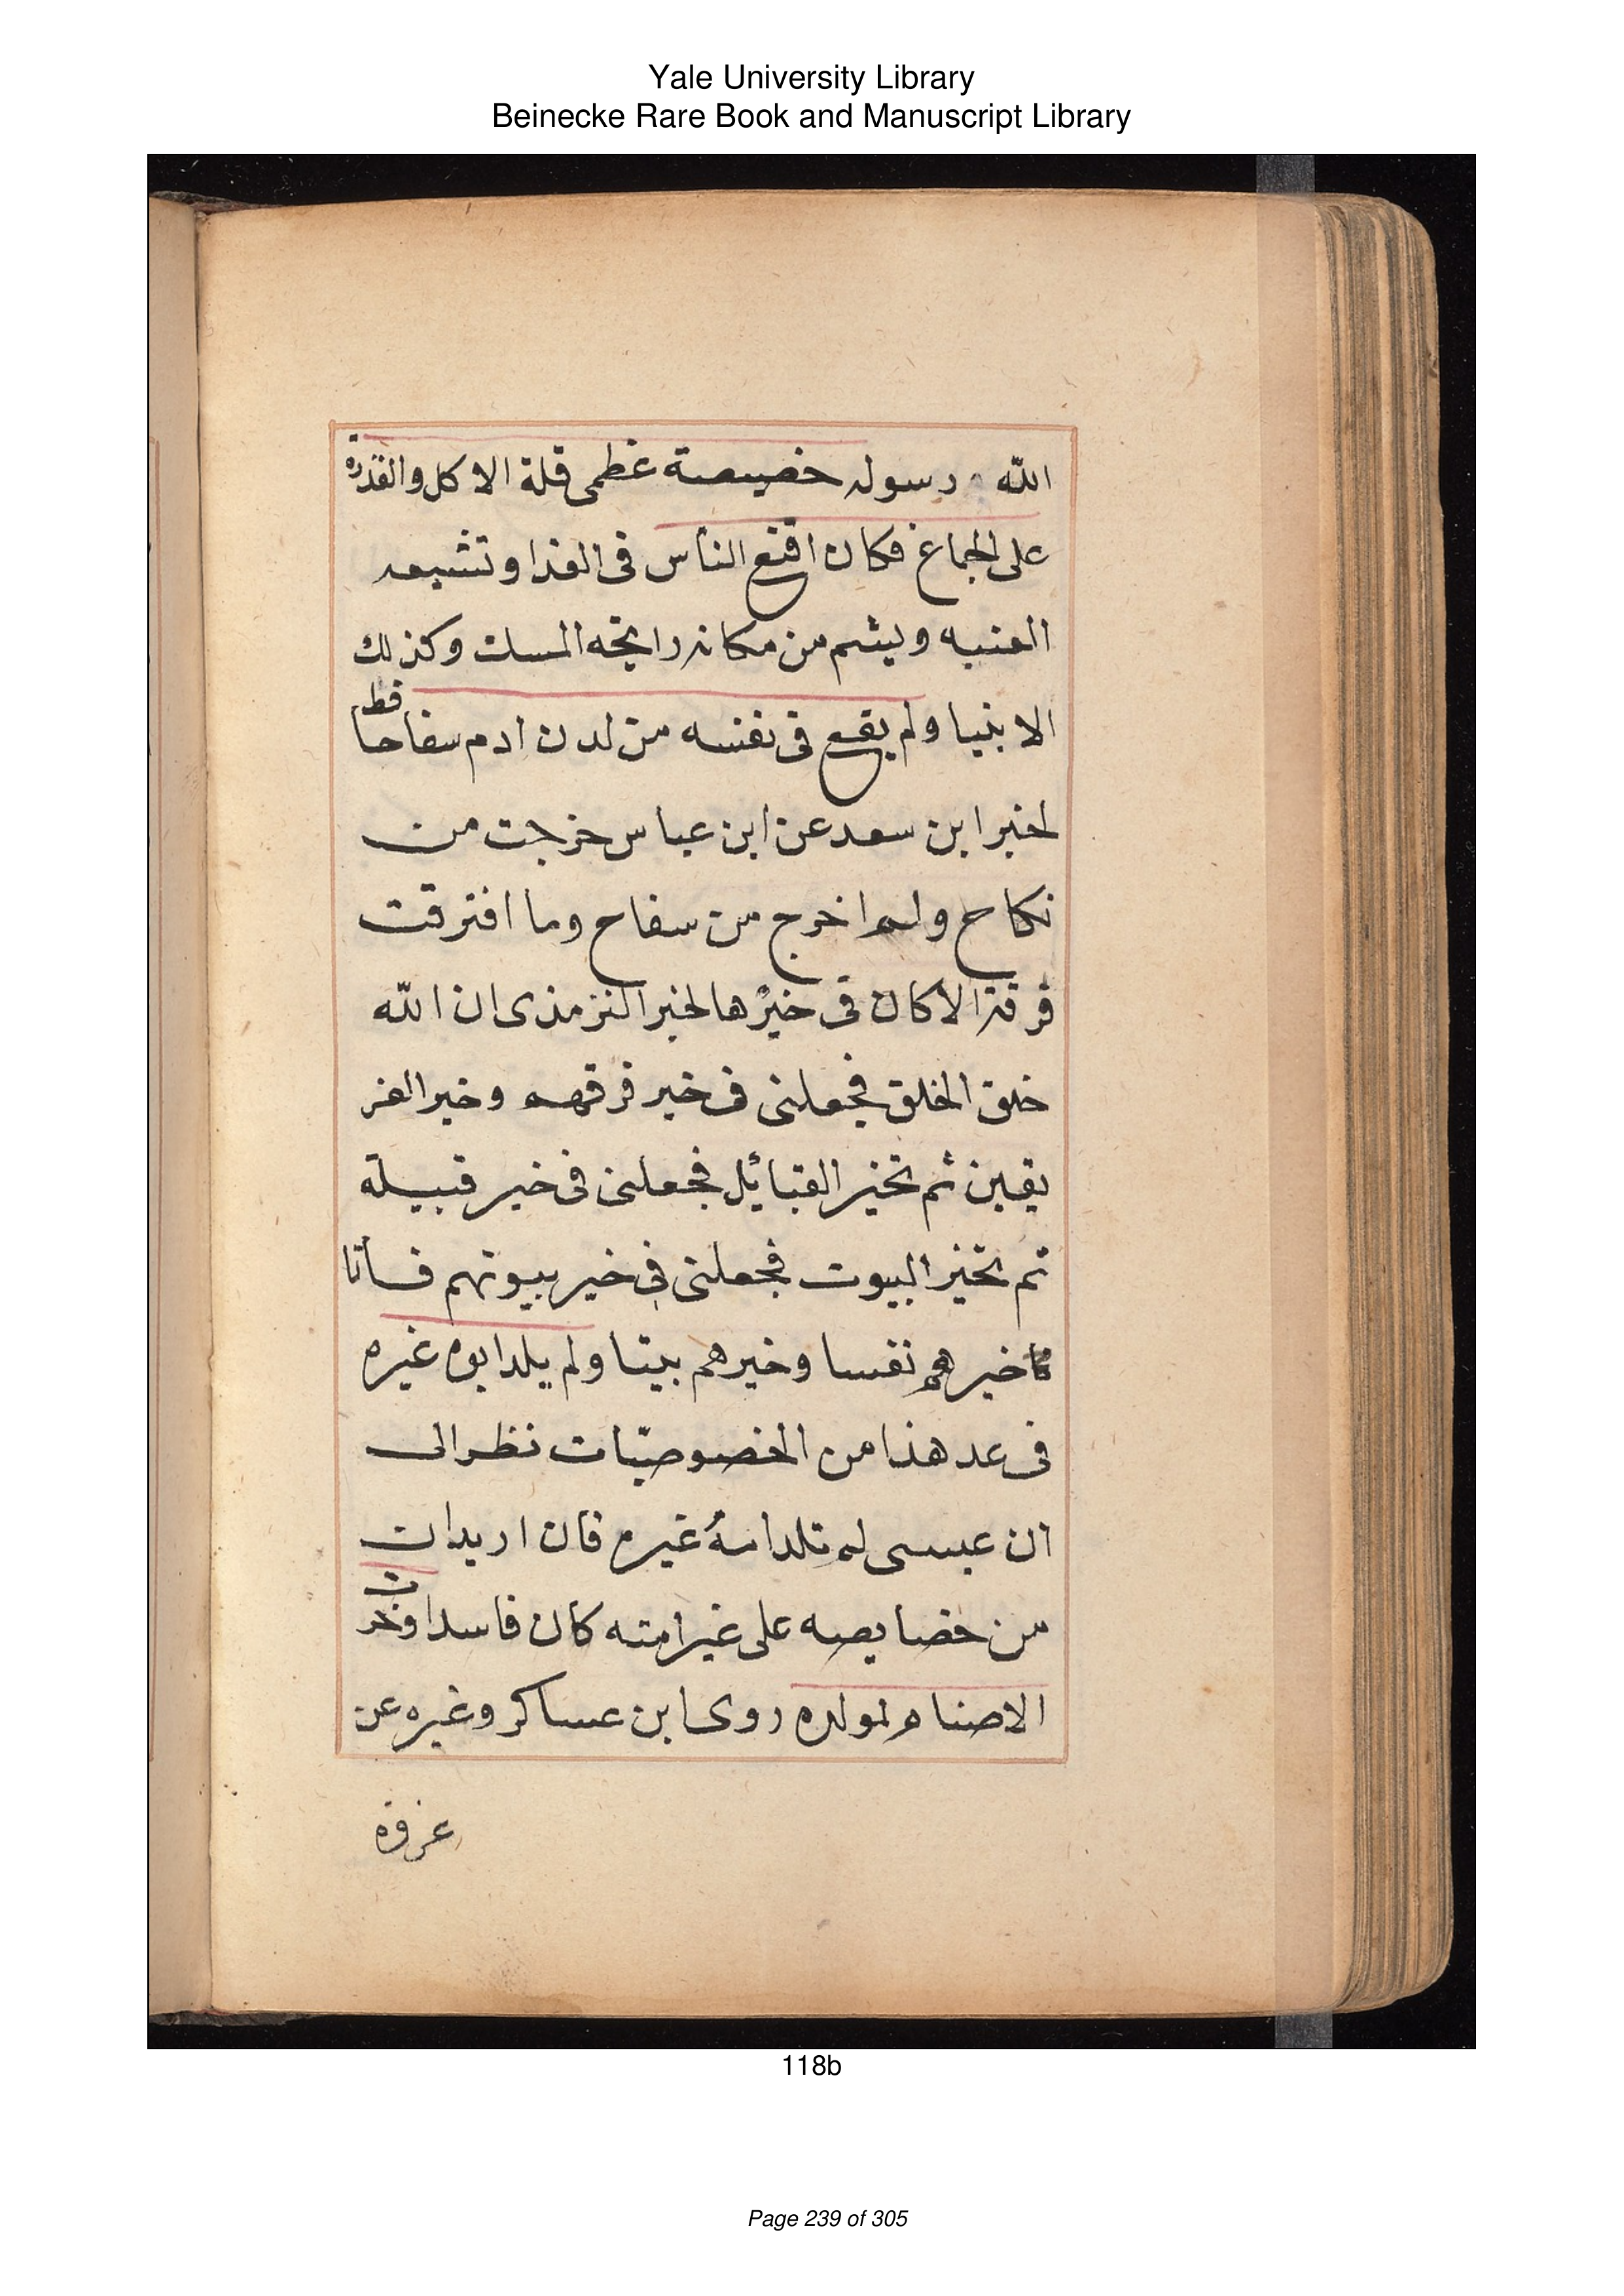 Yale University Library
Beinecke Rare Book and Manuscript Library
الله ورسوله خصيصة عظمى قلة الاكل والقدرة
على الجماع فكان اقنع الناس فى الغذا وتشبعه
الغنيه ويشم من مكانه رايحه المسك وكذلك
الانبيا ولم يقع فى نفسه من لدن ادم سفاحا قط
لخبر ابن سعد عن ابن عباس خرجت من
نكاح ولم اخرج من سفاح وما افترقت
فرقة الا كان فى خيرها لخبر الترمذى ان الله
خلق الخلق فجعلنى فى خير فرقهم وخير الفر
يقين ثم تخير القبائل فجعلنى فى خير قبيلة
ثم تخير البيوت فجعلنى فى خير بيوتهم فأنا
خيرهم نفسا وخيرهم بيتا ولم يلد ابوه غيره
فى عد هذا من الخصوصيّات نظر الى
ان عيسى لم تلد امهُ غيره فان اريد ان
من خصايصه على غير امته كان فاسدا وخرت
الاصنام لمولده روى ابن عساكر وغيره عن
عروة
118b
Page 239 of 305